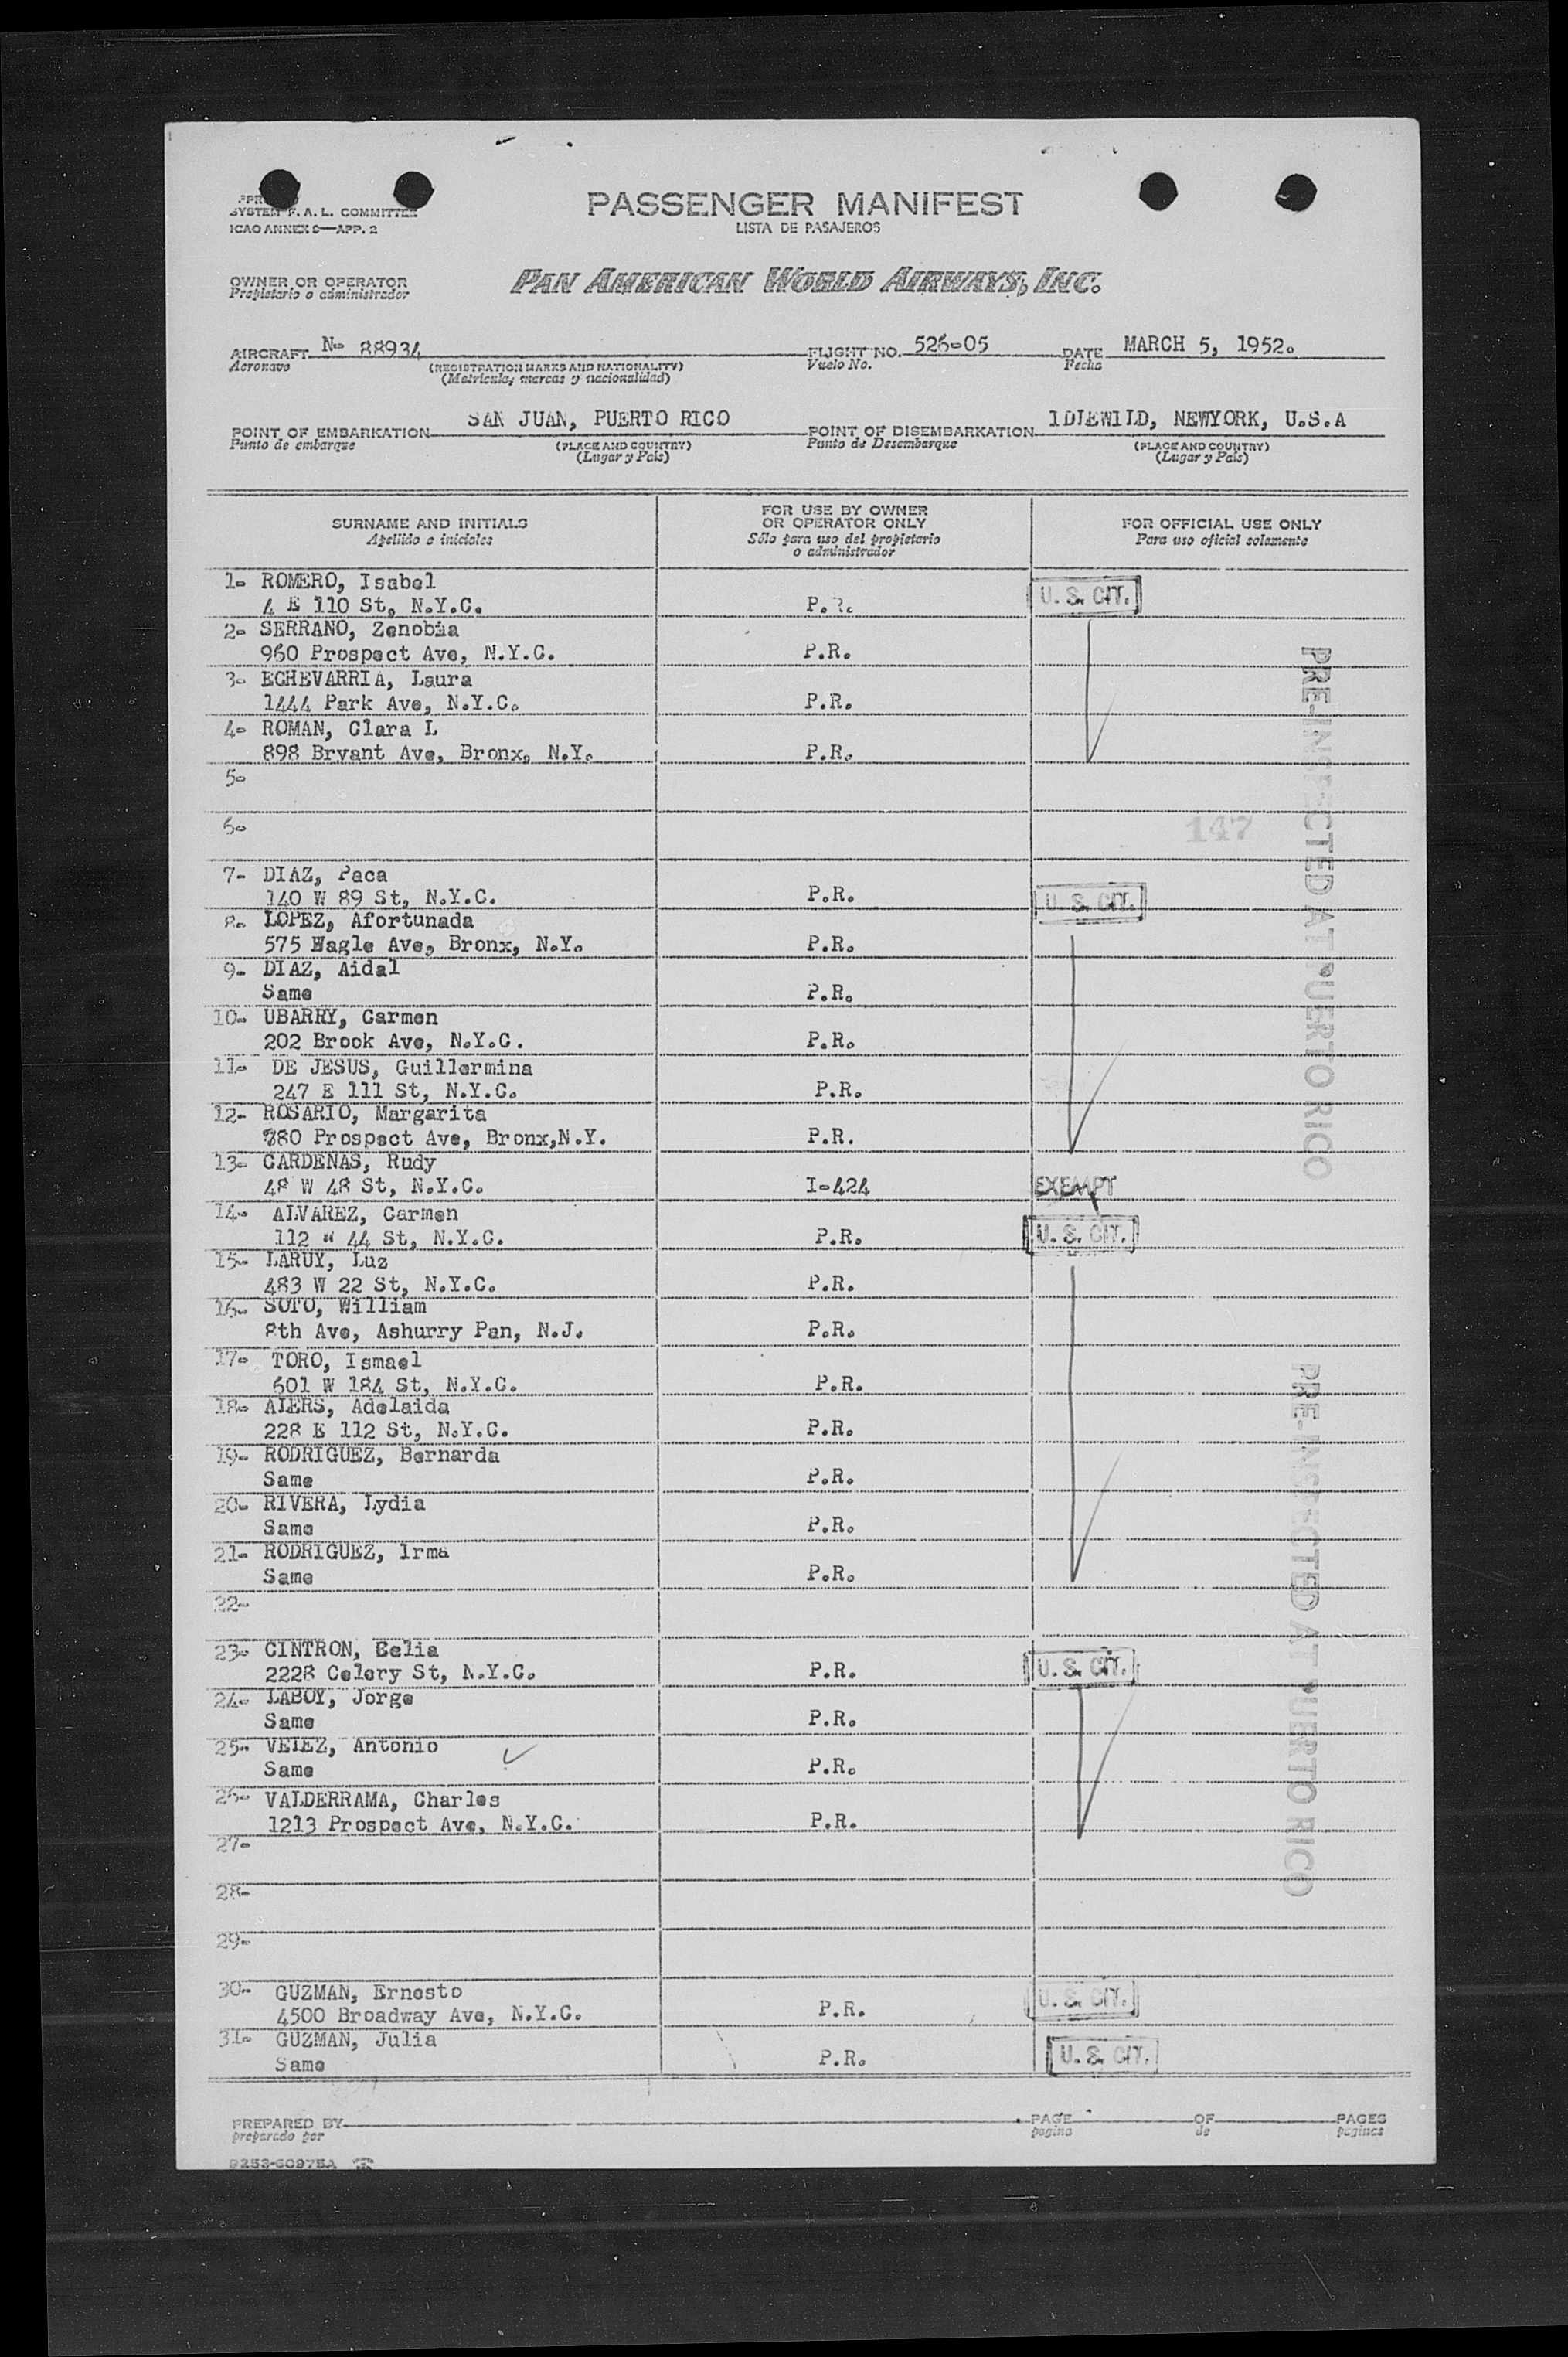 SYSTEM F. A. L. COMMITTEE
ICAO ANNEX 9—APP. 2
PASSENGER MANIFEST
LISTA DE PASAJEROS
OWNER OR OPERATOR
Propietario o administrador
PAN AMERICAN WORLD AIRWAYS, INC.
AIRCRAFT N- 88934 FLIGHT NO. 526-05 DATE MARCH 5, 1952.
Aeronave (REGISTRATION MARKS AND NATIONALITY) Vuelo No. Fecha
(Matricula, marcas y nacionalidad)
POINT OF EMBARKATION SAN JUAN, PUERTO RICO POINT OF DISEMBARKATION IDLEWILD, NEWYORK, U.S.A
Punto de embarque (PLACE AND COUNTRY) Punto de Desembarque (PLACE AND COUNTRY)
(Lugar y País) (Lugar y País)
SURNAME AND INITIALS FOR USE BY OWNER OR OPERATOR ONLY FOR OFFICIAL USE ONLY
Apellido e iniciales Sólo para uso del propietario o administrador Para uso oficial solamente
1- ROMERO, Isabel
4 E 110 St, N.Y.C. P.R. U. S. CIT.
2- SERRANO, Zenobia
960 Prospect Ave, N.Y.C. P.R.
3- ECHEVARRIA, Laura
1444 Park Ave, N.Y.C. P.R.
4- ROMAN, Clara L
898 Bryant Ave, Bronx, N.Y. P.R.
5-
6-
147
7- DIAZ, Paca
140 W 89 St, N.Y.C. P.R. U. S. CIT.
8- LOPEZ, Afortunada
575 Eagle Ave, Bronx, N.Y. P.R.
9- DIAZ, Aidal
Same P.R.
10- UBARRY, Carmen
202 Brook Ave, N.Y.C. P.R.
11- DE JESUS, Guillermina
247 E 111 St, N.Y.C. P.R.
12- ROSARIO, Margarita
780 Prospect Ave, Bronx,N.Y. P.R.
13- CARDENAS, Rudy
48 W 48 St, N.Y.C. I-424 EXEMPT
14- ALVAREZ, Carmen
112 W 44 St, N.Y.C. P.R. U. S. CIT.
15- LARUY, Luz
483 W 22 St, N.Y.C. P.R.
16- SOTO, William
8th Ave, Ashurry Pan, N.J. P.R.
17- TORO, Ismael
601 W 184 St, N.Y.C. P.R.
18- ALERS, Adelaida
228 E 112 St, N.Y.C. P.R.
19- RODRIGUEZ, Bernarda
Same P.R.
20- RIVERA, Lydia
Same P.R.
21- RODRIGUEZ, Irma
Same P.R.
22-
23- CINTRON, Celia
2228 Celery St, N.Y.C. P.R. U. S. CIT.
24- LABOY, Jorge
Same P.R.
25- VELEZ, Antonio
Same P.R.
26- VALDERRAMA, Charles
1213 Prospect Ave, N.Y.C. P.R.
27-
28-
29-
30- GUZMAN, Ernesto
4500 Broadway Ave, N.Y.C. P.R. U. S. CIT.
31- GUZMAN, Julia
Same P.R. U. S. CIT.
PRE-INSPECTED AT PUERTO RICO
PRE-INSPECTED AT PUERTO RICO
PREPARED BY PAGE OF PAGES
preparado por pagina de paginas